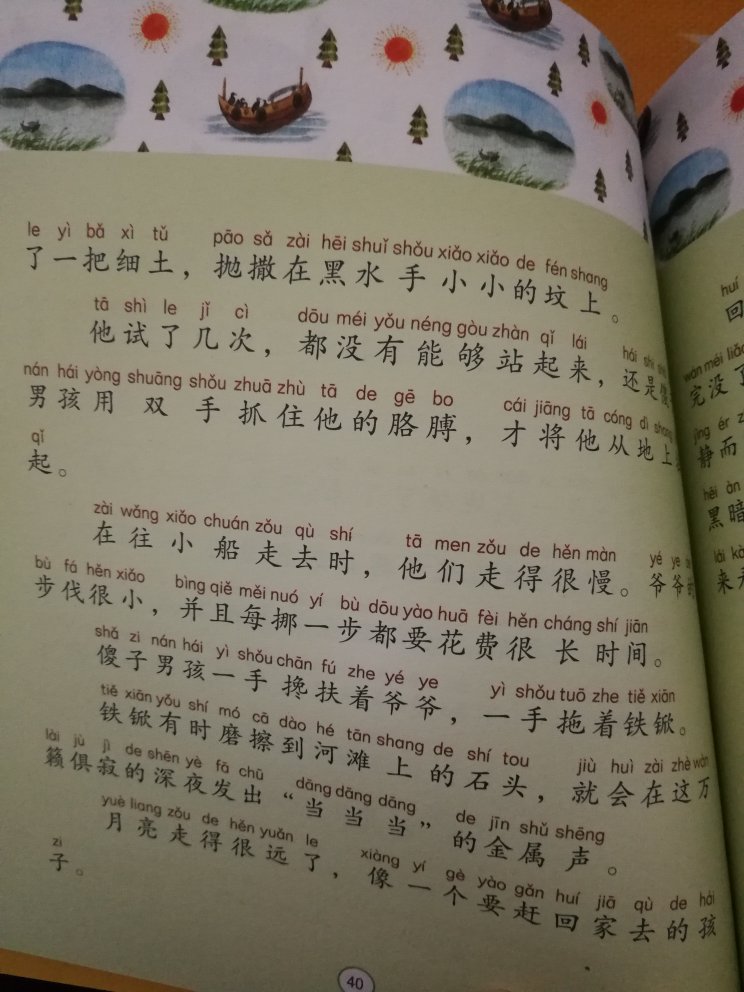 le yì bǎ xì tǔ pāo sǎ zài hēi shuǐ shǒu xiǎo xiǎo de fén shang
了一把细土，抛撒在黑水手小小的坟上。
tā shì le jǐ cì dōu méi yǒu néng gòu zhàn qǐ lái hái shi shǎ
他试了几次，都没有能够站起来，还是傻
nán hái yòng shuāng shǒu zhuā zhù tā de gē bo cái jiāng tā cóng dì shang
男孩用双手抓住他的胳膊，才将他从地上
qǐ
起。
zài wǎng xiǎo chuán zǒu qù shí tā men zǒu de hěn màn yé ye
在往小船走去时，他们走得很慢。爷爷
bù fá hěn xiǎo bìng qiě měi nuó yí bù dōu yào huā fèi hěn cháng shí jiān
步伐很小，并且每挪一步都要花费很长时间。
shǎ zi nán hái yì shǒu chān fú zhe yé ye yì shǒu tuō zhe tiě xiān
傻子男孩一手搀扶着爷爷，一手拖着铁锨。
tiě xiān yǒu shí mó cā dào hé tān shang de shí tou jiù huì zài zhè wàn
铁锨有时磨擦到河滩上的石头，就会在这万
lài jù jì de shēn yè fā chū dāng dāng dāng de jīn shǔ shēng
籁俱寂的深夜发出“当当当”的金属声。
yuè liang zǒu de hěn yuǎn le xiàng yí gè yào gǎn huí jiā qù de hái
月亮走得很远了，像一个要赶回家去的孩
zi
子。
40
huí
回
wán méi liǎo
完没了
jìng ér
静而
hēi àn
黑暗
lái
来